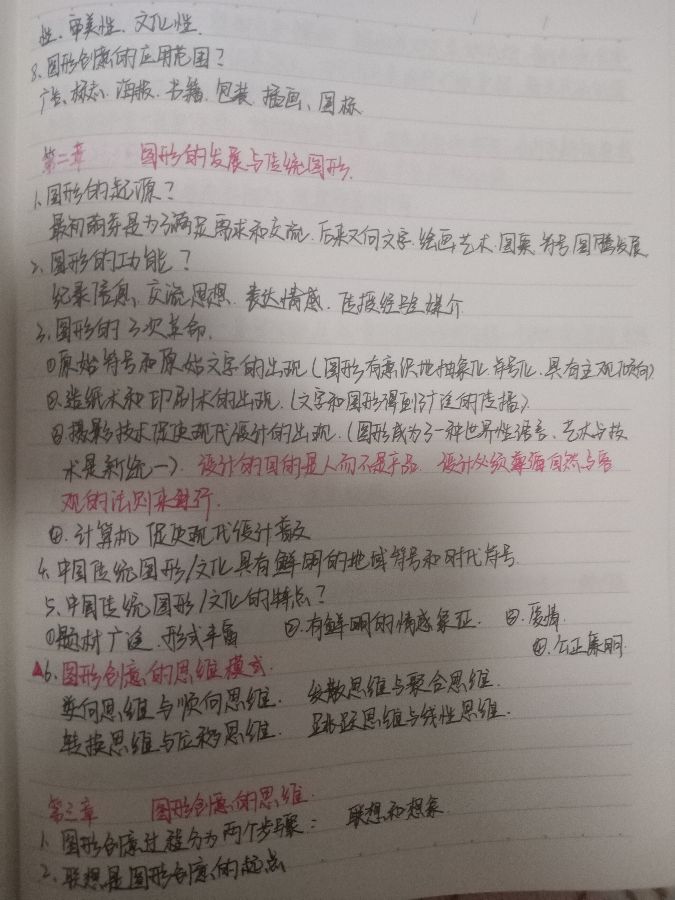 性、审美性、文化性.
8.图形创意的应用范围?
广告、标志、海报、书籍、包装、插画、图标
第二章 图形的发展与传统图形.
1.图形的起源?
最初萌芽是为了满足需求和交流,后来又向文字、绘画艺术、图案、符号图腾发展
2.图形的功能?
纪录信息、交流思想、表达情感、传授经验媒介
3.图形的3次革命.
①原始符号和原始文字的出现(图形有意识地抽象化、符号化、具有主观倾向)
②造纸术和印刷术的出现.(文字和图形得到广泛的传播)
③摄影技术促使现代设计的出现.(图形成为了一种世界性语言、艺术与技
术是新统一). 设计的目的是人而不是产品. 设计必须遵循自然与客
观的法则来进行.
④.计算机促使现代设计普及
4.中国传统图形/文化具有鲜明的地域符号和时代符号.
5.中国传统图形/文化的特点?
①题材广泛、形式丰富 ②.有鲜明的情感象征. ③.爱情
④.公正廉明.
▲6.图形创意的思维模式.
逆向思维与顺向思维. 发散思维与聚合思维.
转换思维与位移思维. 跳跃思维与线性思维.
第三章 图形创意的思维.
1.图形创意过程分为两个步骤: 联想和想象
2.联想是图形创意的起点